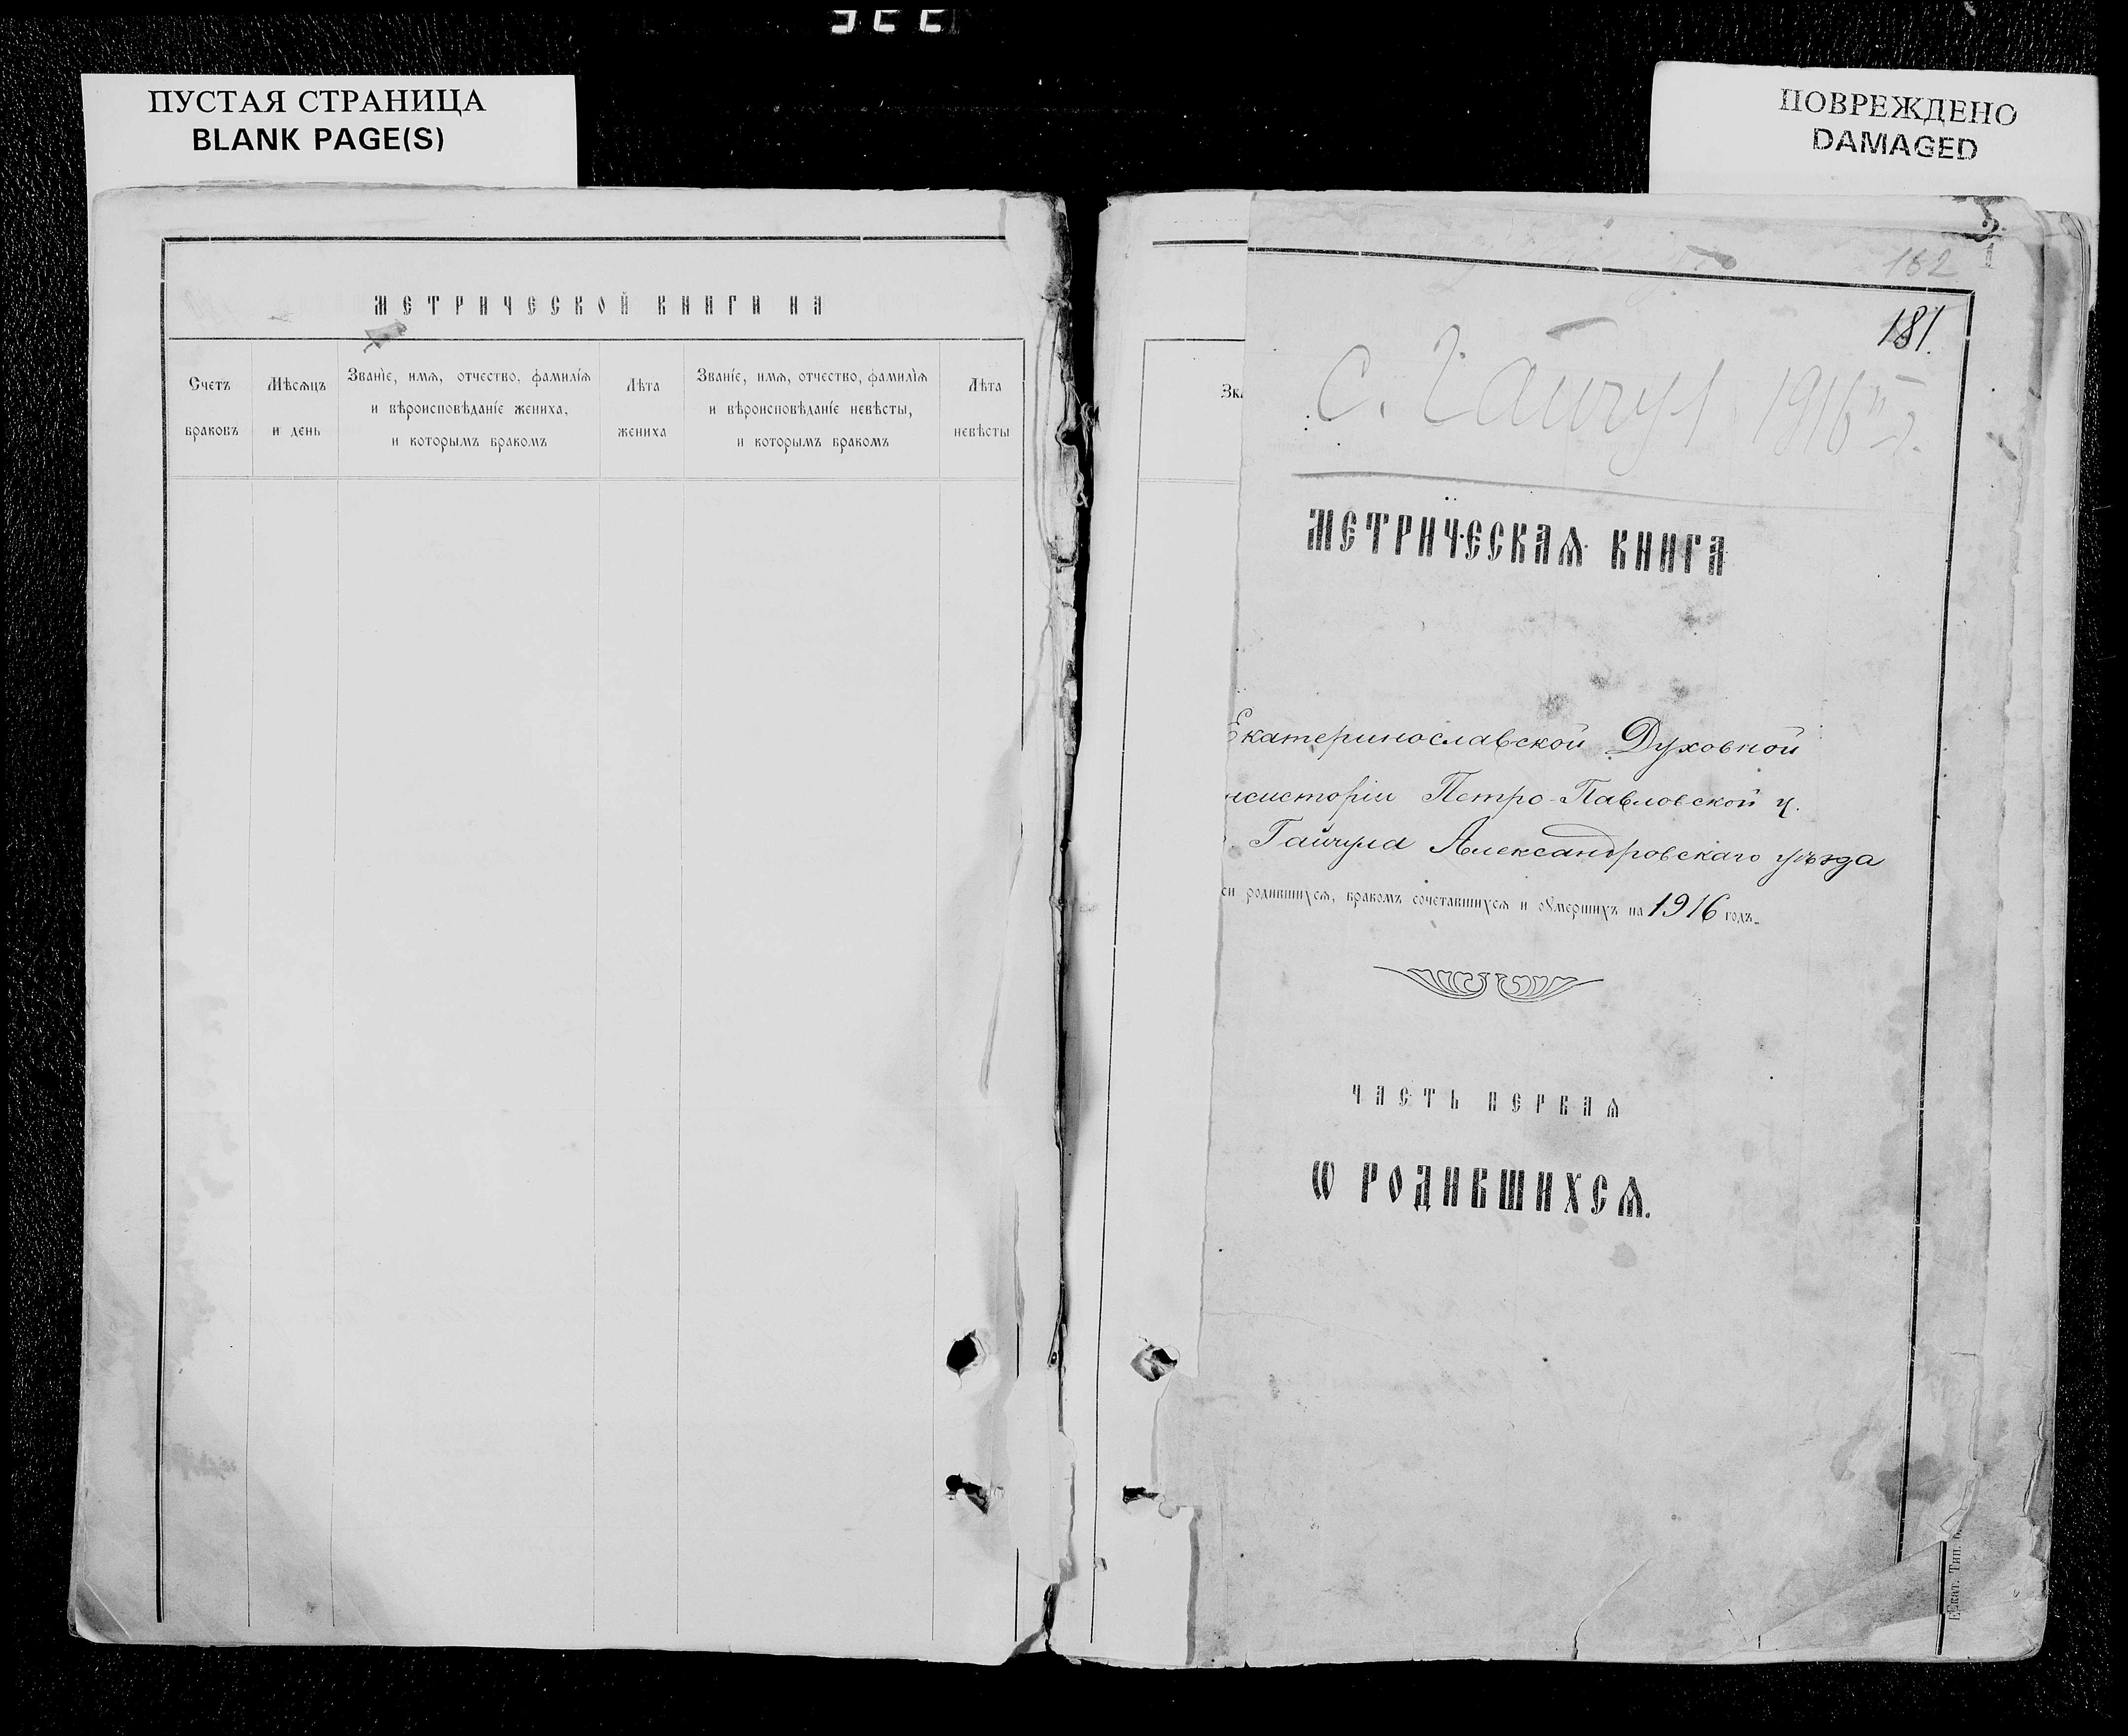 ПУСТАЯ СТРАНИЦА
BLANK PAGE(S)
ПОВРЕЖДЕНО
DAMAGED
МЕТРИЧЕСКОЙ КНИГИ НА
Счетъ браковъ
Мѣсѧцъ и день
Званїе, имѧ, отчество, фамилїѧ
и вѣроисповѣданїе жениха,
и которымъ бракомъ
Лѣта жениха
Званїе, имѧ, отчество, фамилїѧ
и вѣроисповѣданїе невѣсты,
и которымъ бракомъ
Лѣта невѣсты
182
181.
с. Гайчул 1916
МЕТРИЧЕСКАѦ КНИГА
Екатеринославской Духовной
нсисторіи Петро-Павловской ц.
Гайчула Александровскаго уѣзда
си родившихсѧ, бракомъ сочетавшихсѧ и ѹмершихъ на 1916 годъ.
ЧАСТЬ ПЕРВАѦ
Ѡ РОДИВШИХСѦ.
Екат. Тип.